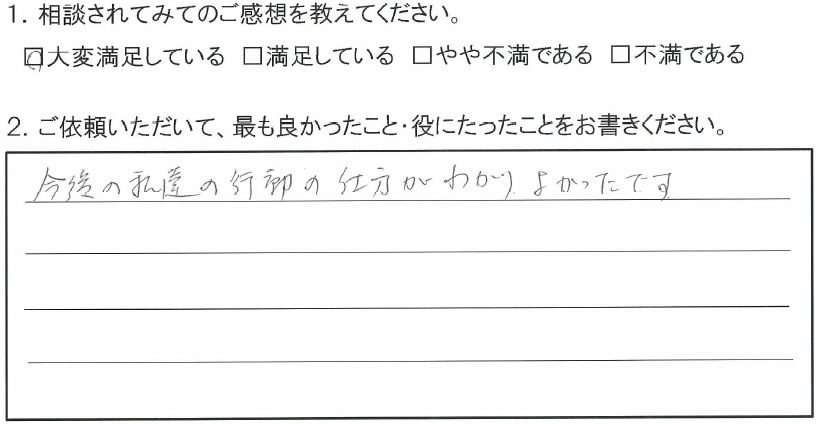 1. 相談されてみてのご感想を教えてください。
☑大変満足している □満足している □やや不満である □不満である
2. ご依頼いただいて、最も良かったこと・役にたったことをお書きください。
今後の私達の行動の仕方がわかり よかったです